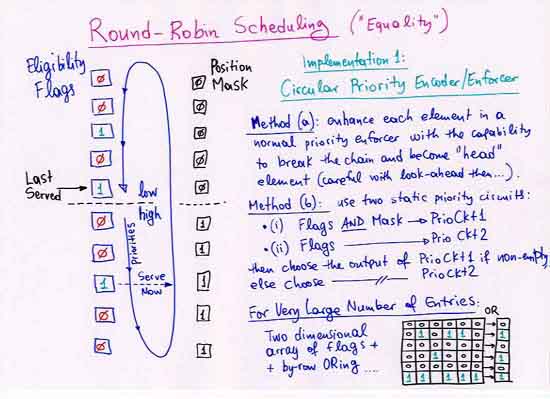 Round-Robin Scheduling ("Equality")
Eligibility
Flags
Position
Mask
Ø
Ø
1
Ø
1
Ø
Ø
1
Ø
Ø
Ø
Ø
Ø
Ø
Ø
1
1
1
1
1
Last
Served
low
high
Priorities
Serve
Now
Implementation 1:
Circular Priority Encoder/Enforcer
Method (a): enhance each element in a
normal priority enforcer with the capability
to break the chain and become "head"
element (careful with look-ahead then...).
Method (b): use two static priority circuits:
• (i) Flags AND Mask → PrioCkt1
• (ii) Flags → PrioCkt2
then choose the output of PrioCkt1 if non-empty
else choose —〃— PrioCkt2
For Very Large Number of Entries:
Two dimensional
array of flags +
+ by-row ORing ....
OR